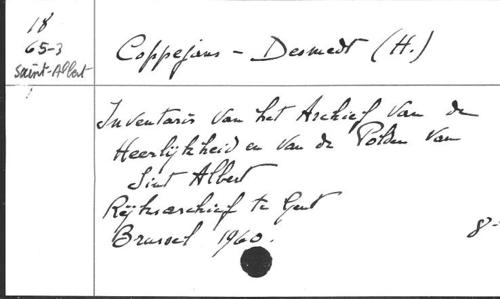 18
65-3
Saint-Albert
Coppejans - Desmedt (H.)
Inventaris van het Archief van de
Heerlijkheid en van de Polder van
Sint Albert
Rijksarchief te Gent
Brussel 1960.
8-